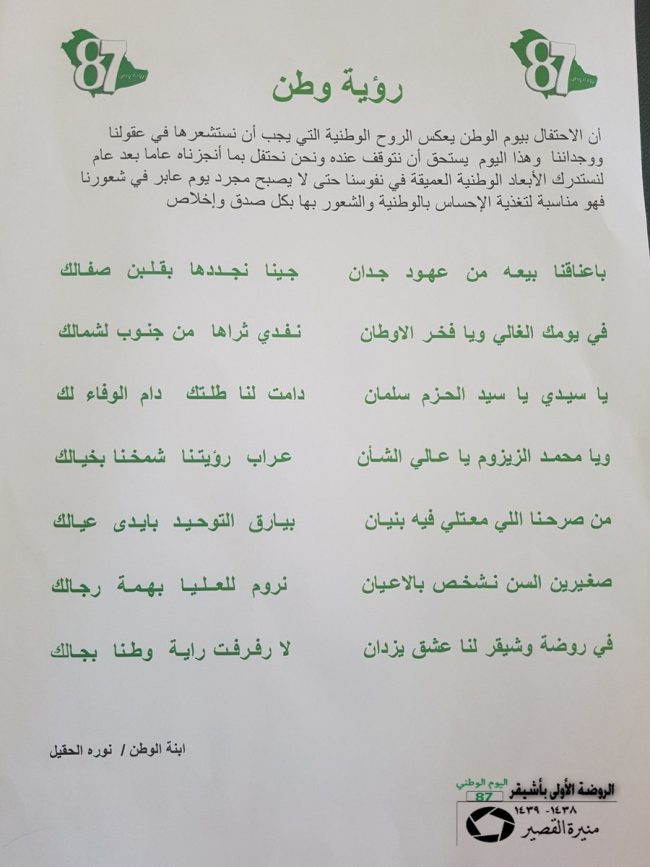 87
87
رؤية وطن
أن الاحتفال بيوم الوطن يعكس الروح الوطنية التي يجب أن نستشعرها في عقولنا
ووجداننا وهذا اليوم يستحق أن نتوقف عنده ونحن نحتفل بما أنجزناه عاما بعد عام
لنستدرك الأبعاد الوطنية العميقة في نفوسنا حتى لا يصبح مجرد يوم عابر في شعورنا
فهو مناسبة لتغذية الإحساس بالوطنية والشعور بها بكل صدق وإخلاص
باعناقنا بيعه من عهود جدان جينا نجددها بقلبن صفالك
في يومك الغالي ويا فخر الاوطان نفدي ثراها من جنوب لشمالك
يا سيدي يا سيد الحزم سلمان دامت لنا طلتك دام الوفاء لك
ويا محمد الزيزوم يا عالي الشأن عراب رؤيتنا شمخنا بخيالك
من صرحنا اللي معتلي فيه بنيان بيارق التوحيد بايدى عيالك
صغيرين السن نشخص بالاعيان نروم للعليا بهمة رجالك
في روضة وشيقر لنا عشق يزدان لا رفرفت راية وطنا بجالك
ابنة الوطن / نوره الحقيل
الروضة الأولى بأشيقر اليوم الوطني 87
١٤٣٨- ١٤٣٩
منيرة القصير